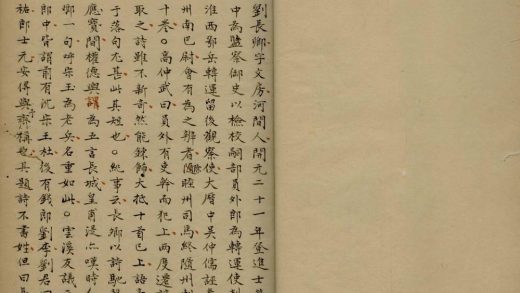 劉長卿字文房河間人開元二十一年登進士
中為監察御史以檢校祠部員外郎為轉運使判
淮西鄂岳轉運留後觀察使大曆中吳仲孺誣
州南巴尉會有為之辨者除睦州司馬終隨州刺
十卷○高仲武曰員外有吏幹而犯上兩度遷謫
取之詩雖不新奇然能鍊飾大抵十首已上語
于落句尤甚此其短也○紀事云長卿以詩馳
應寶間權德輿謂為五言長城皇甫湜亦嘆時
卿一句呼宋玉為老兵名重如此○雲溪友議
郎中皆謂前有沈宋王杜後有錢郎劉李劉君
祐郎士元安得與予齊稱也其題詩不書姓但曰長